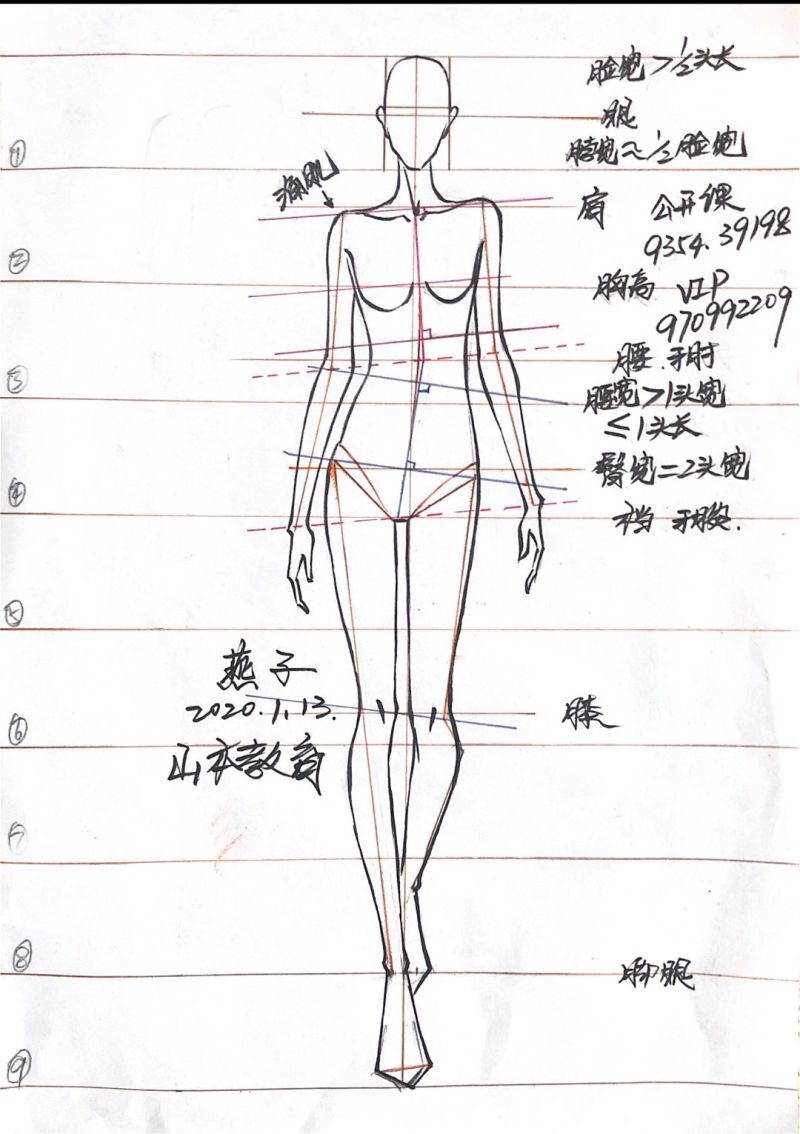 脸宽>½头长
眼
①
脖宽≈½脸宽
肩 公开课
9354.39198
②
胸高 VIP
970992209
腰.手肘
③
腰宽>1头宽
≤1头长
臀宽=2头宽
④
裆 手腕.
⑤
燕子
2020.1.13.
膝
⑥
山本教育
⑦
⑧
⑨